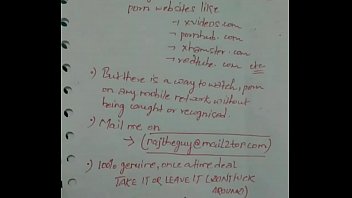 porn websites like
→ xvideos.com
→ pornhub.com
→ xhamster.com
→ redtube.com etc
•) But there is a way to watch, porn
on any mobile network without
being caught or recognised.
•) Mail me on
→ (rajtheguy@mail2tor.com)
•) 100% genuine, once a time deal
TAKE IT OR LEAVE IT (DON'T FUCK
AROUND)